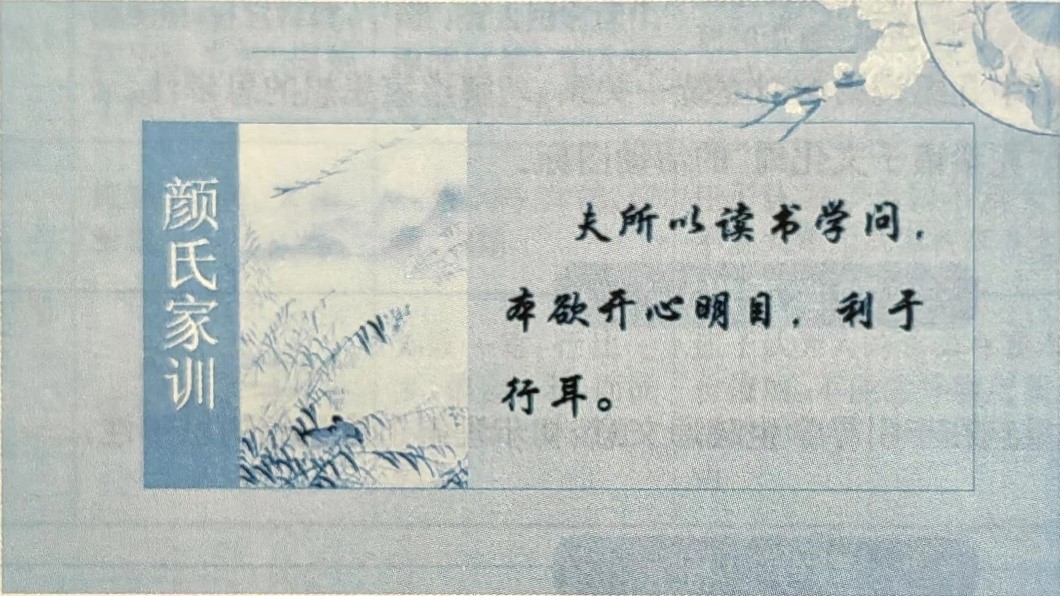 颜氏家训
夫所以读书学问，
本欲开心明目，利于
行耳。